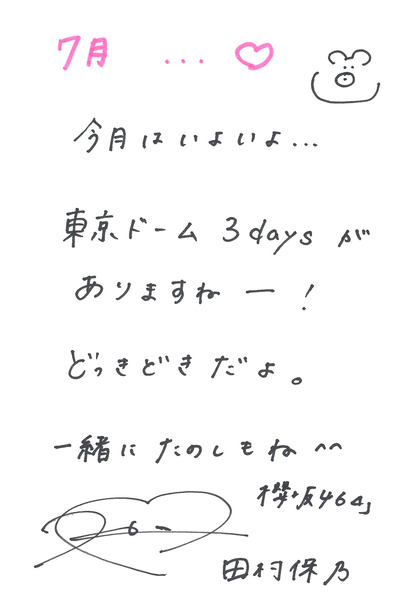 7月 ... ♡
今月はいよいよ...
東京ドーム 3daysが
ありますねー!
どっきどきだよ。
一緒にたのしもね^^
櫻坂46
田村保乃